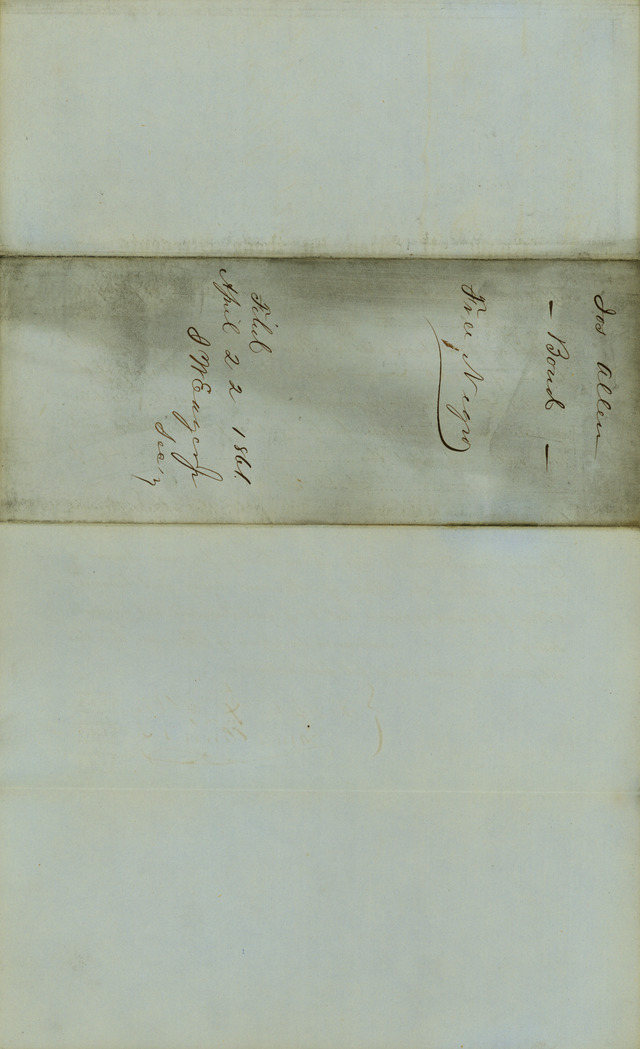 Jos Allen
— Bond —
Free Negro
Filed
April 22 1861.
J W Eager Jr
Sec'y